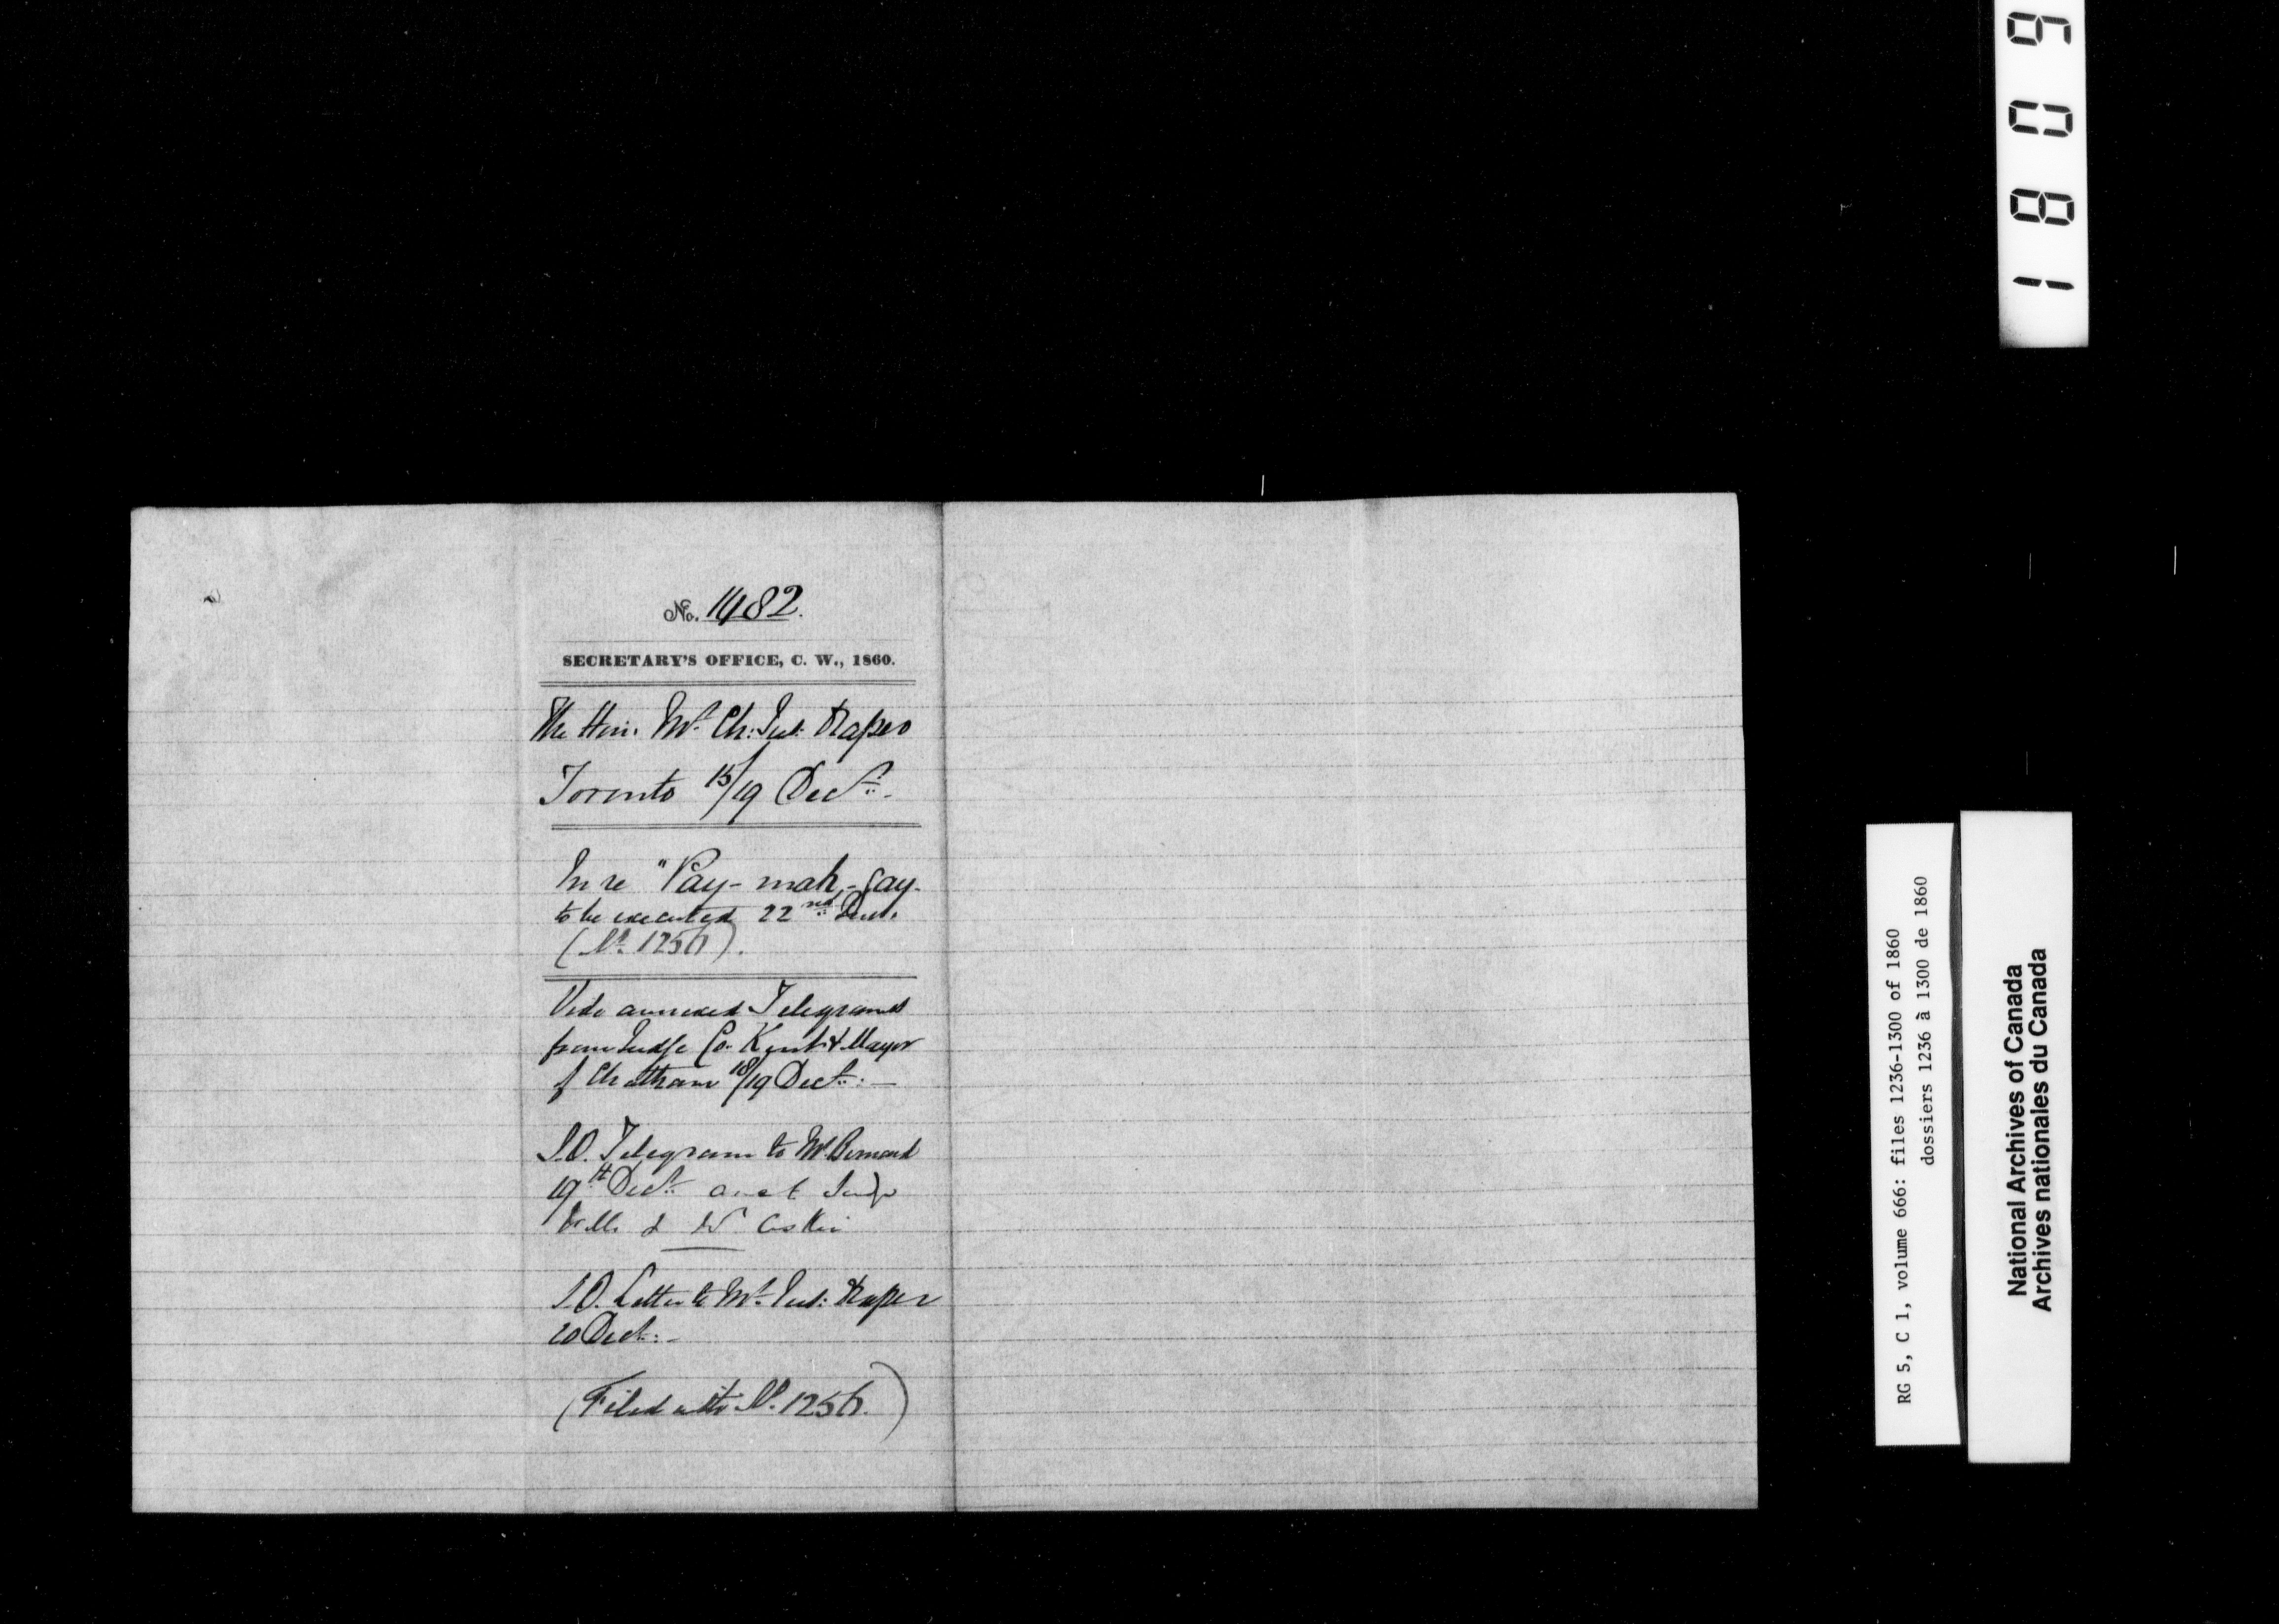 No. 1482.
SECRETARY'S OFFICE, C. W., 1860.
The Hon. Mr. Ch: Jus: Draper
Toronto 15/19 Decr.
In re "Pay-mah-gay-
to be executed 22nd Decr.
(No. 1256).
Vide annexed Telegrams
from Judge Co. Kent & Mayor
of Chatham 18/19 Decr: —
S.O. Telegram to Mr Bernard
19th Decr. and Judge
Wells &
S.O. Letter to Mr. Jus: Draper
20 Decr: -
(Filed with No. 1256.)
1809
RG 5, C 1, volume 666: files 1236-1300 of 1860
dossiers 1236 à 1300 de 1860
National Archives of Canada
Archives nationales du Canada